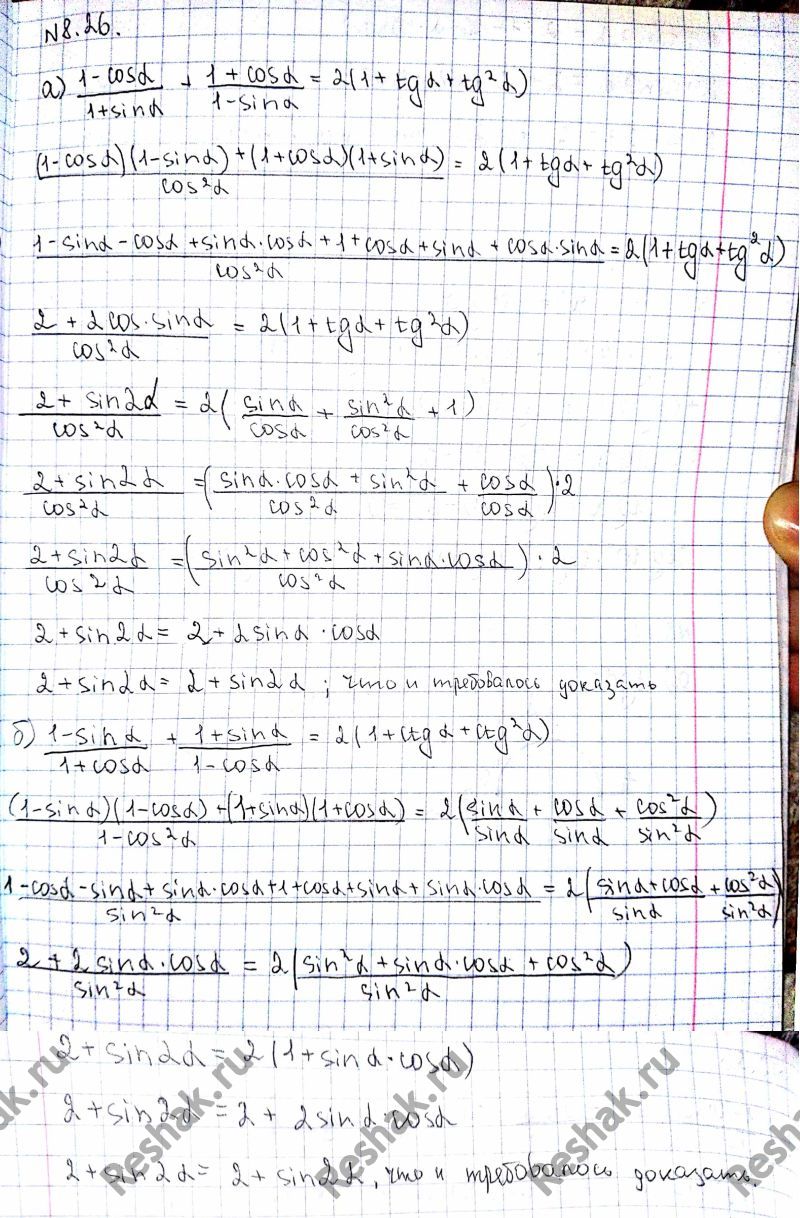 N8.26.
а) (1-cosα)/(1+sinα) + (1+cosα)/(1-sinα) = 2(1+tgα+tg²α)
((1-cosα)(1-sinα)+(1+cosα)(1+sinα))/cos²α = 2(1+tgα+tg²α)
(1-sinα-cosα+sinα·cosα+1+cosα+sinα+cosα·sinα)/cos²α = 2(1+tgα+tg²α)
(2+2cos·sinα)/cos²α = 2(1+tgα+tg²α)
(2+sin2α)/cos²α = 2(sinα/cosα + sin²α/cos²α + 1)
(2+sin2α)/cos²α = ((sinα·cosα+sin²α)/cos²α + cosα/cosα)·2
(2+sin2α)/cos²α = ((sin²α+cos²α+sinα·cosα)/cos²α)·2
2+sin2α = 2+2sinα·cosα
2+sin2α = 2+sin2α ; что и требовалось доказать
б) (1-sinα)/(1+cosα) + (1+sinα)/(1-cosα) = 2(1+ctgα+ctg²α)
((1-sinα)(1-cosα)+(1+sinα)(1+cosα))/(1-cos²α) = 2(sinα/sinα + cosα/sinα + cos²α/sin²α)
(1-cosα-sinα+sinα·cosα+1+cosα+sinα+sinα·cosα)/sin²α = 2((sinα+cosα)/sinα + cos²α/sin²α)
(2+2sinα·cosα)/sin²α = 2((sin²α+sinα·cosα+cos²α)/sin²α)
2+sin2α = 2(1+sinα·cosα)
2+sin2α = 2+2sinα·cosα
2+sin2α = 2+sin2α, что и требовалось доказать.
Reshak.ru
Reshak.ru
Reshak.ru
Reshak.ru